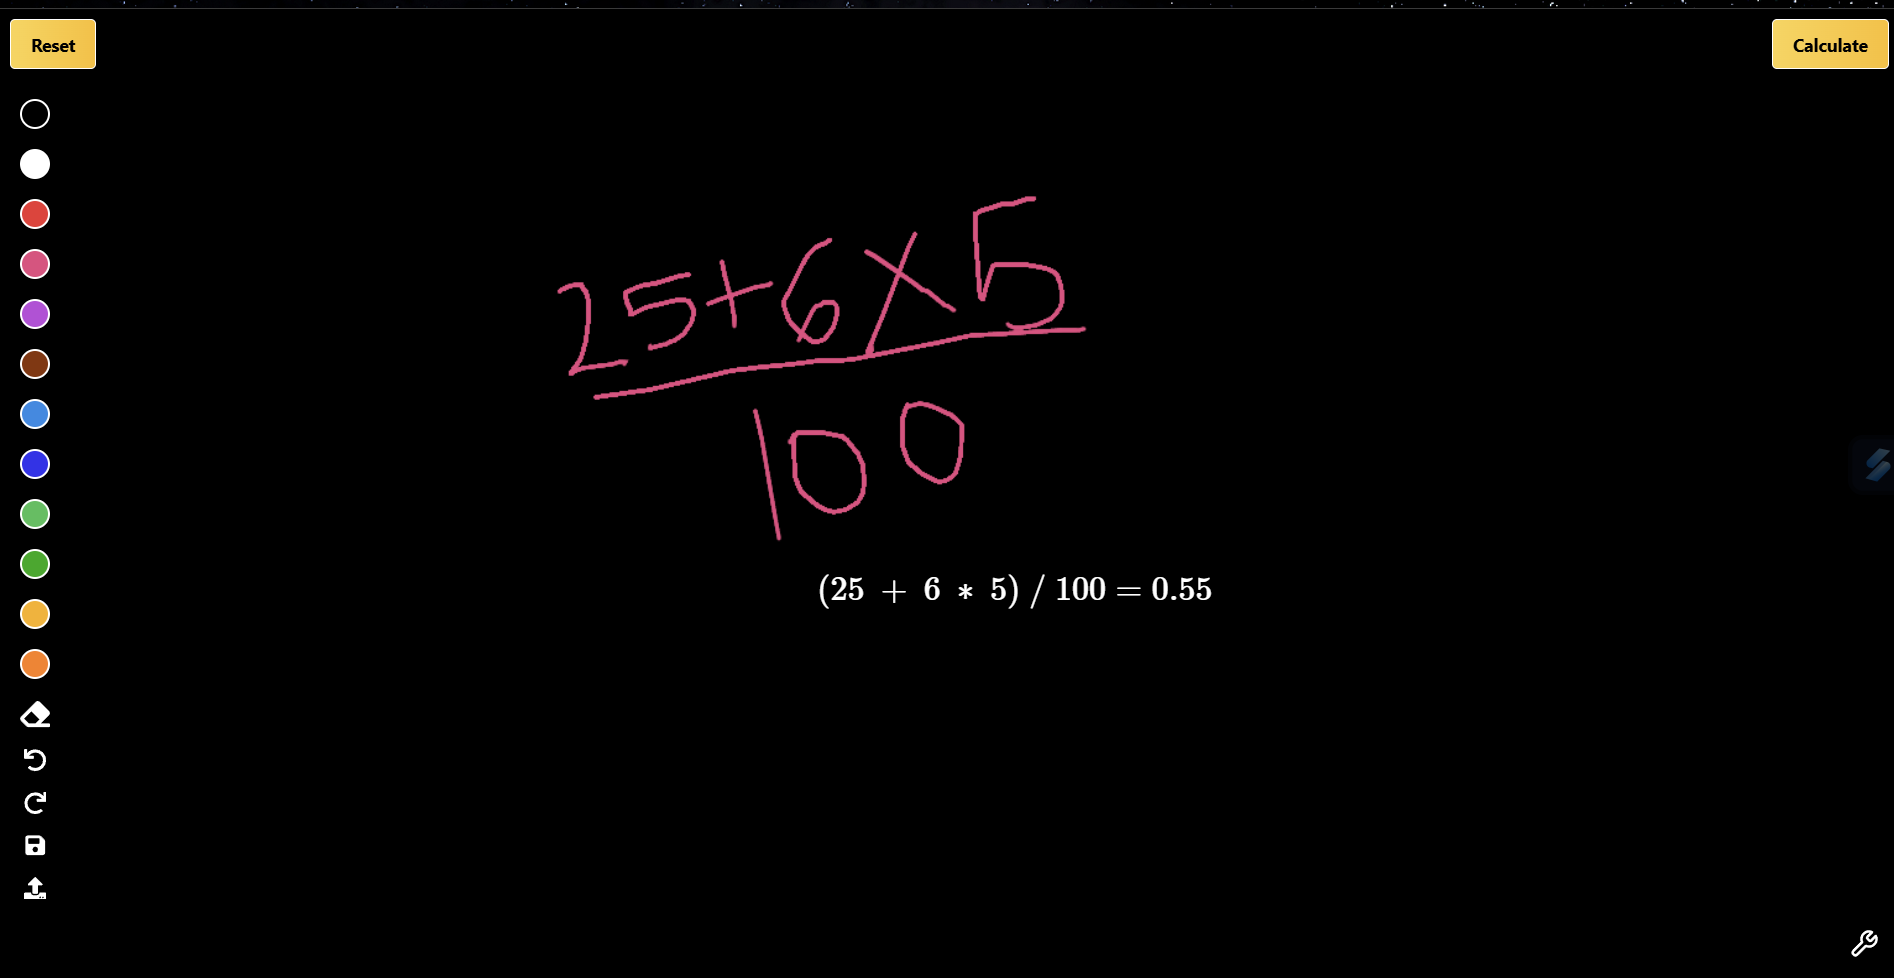 Reset
Calculate
25+6×5
100
(25 + 6 * 5) / 100 = 0.55